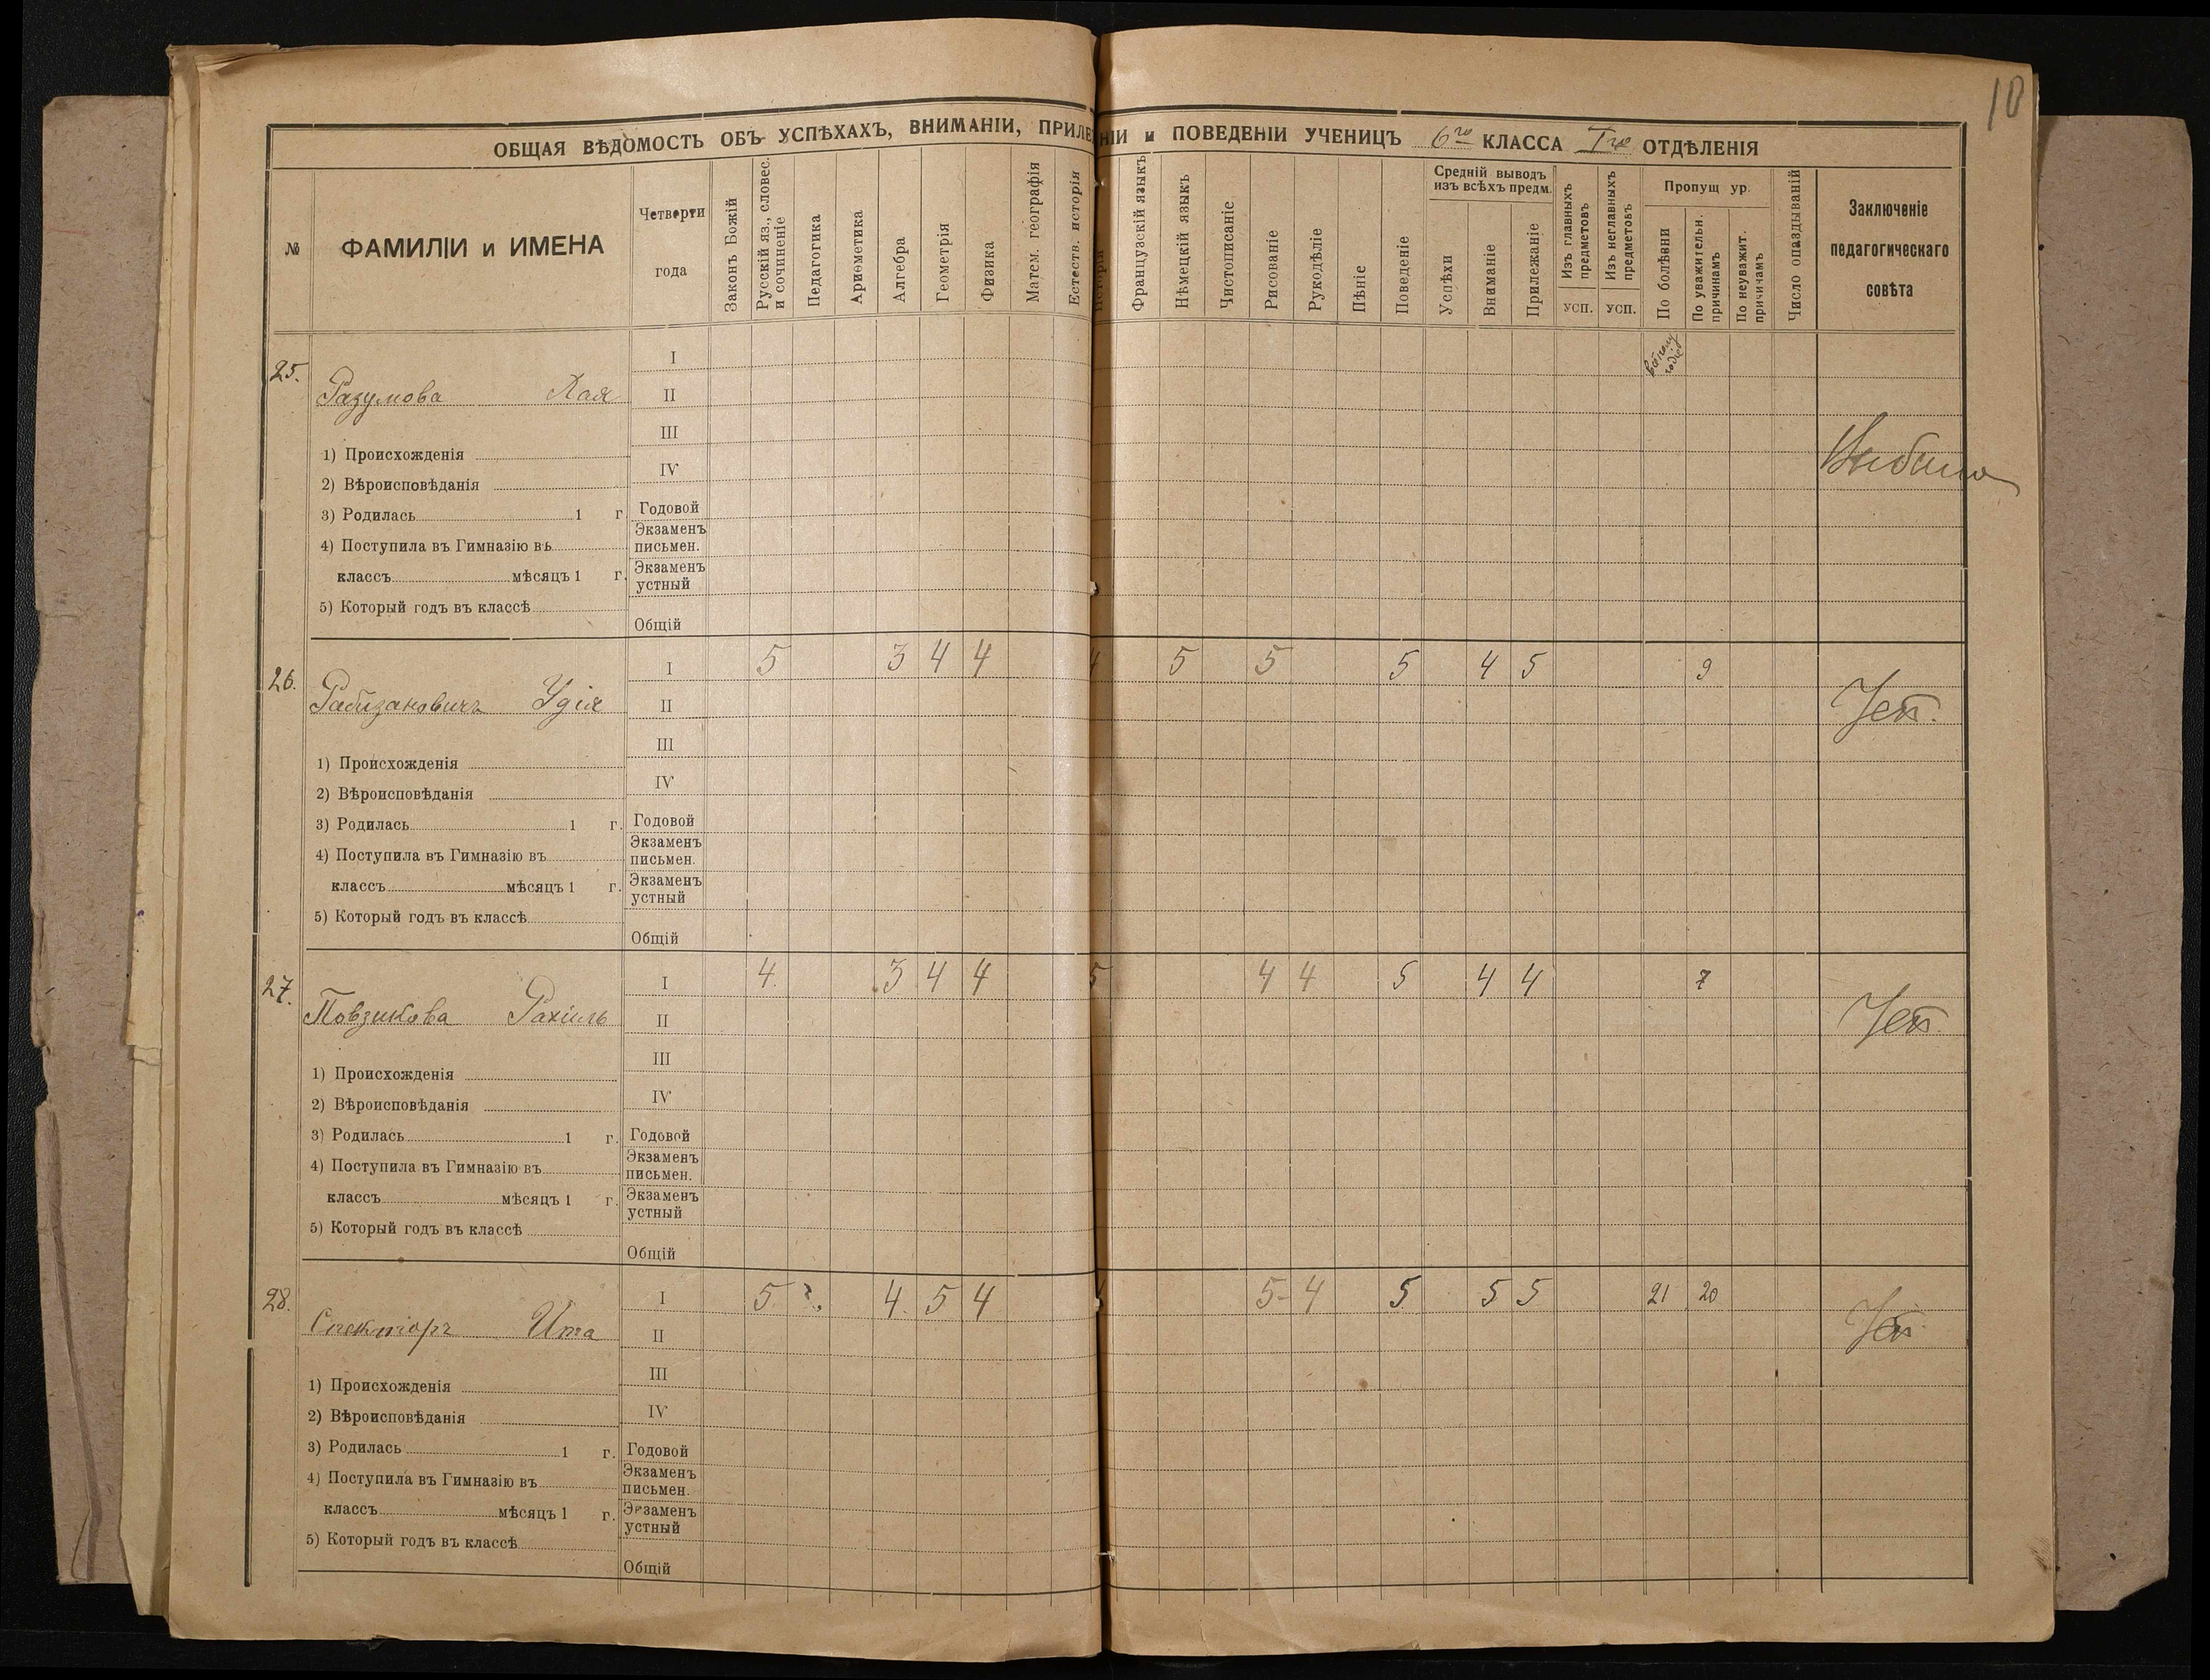 10
ОБЩАЯ ВѢДОМОСТЬ ОБЪ УСПѢХАХЪ, ВНИМАНІИ, ПРИЛЕ НІИ и ПОВЕДЕНІИ УЧЕНИЦЪ 6го КЛАССА Iго ОТДѢЛЕНІЯ
№
ФАМИЛІИ и ИМЕНА
Четверти
года
Законъ Божій
Русскій яз., словес.
и сочиненіе
Педагогика
Ариѳметика
Алгебра
Геометрія
Физика
Матем. географія
Естеств. исторія
Исторія
Французскій языкъ
Нѣмецкій языкъ
Чистописаніе
Рисованіе
Рукодѣліе
Пѣніе
Поведеніе
Средній выводъ
изъ всѣхъ предм.
Успѣхи
Вниманіе
Прилежаніе
Изъ главныхъ
предметовъ
усп.
Изъ неглавныхъ
предметовъ
усп.
Пропущ ур.
По болѣзни
По уважительн.
причинамъ
По неуважит.
причинамъ
Число опаздываній
Заключеніе
педагогическаго
совѣта
25.
Разумова Хая
1) Происхожденія
2) Вѣроисповѣданія
3) Родилась 1 г.
4) Поступила въ Гимназію въ
классъ мѣсяцъ 1 г.
5) Который годъ въ классѣ
I
II
III
IV
Годовой
Экзаменъ
письмен.
Экзаменъ
устный
Общій
Выбыла
26.
Рабизановичъ Удія
1) Происхожденія
2) Вѣроисповѣданія
3) Родилась 1 г.
4) Поступила въ Гимназію въ
классъ мѣсяцъ 1 г.
5) Который годъ въ классѣ
I 5 3 4 4 4 5 5 5 4 5 9
II
III
IV
Годовой
Экзаменъ
письмен.
Экзаменъ
устный
Общій
27.
Повзикова Рахиль
1) Происхожденія
2) Вѣроисповѣданія
3) Родилась 1 г.
4) Поступила въ Гимназію въ
классъ мѣсяцъ 1 г.
5) Который годъ въ классѣ
I 4 3 4 4 5 4 4 5 4 4 7
II
III
IV
Годовой
Экзаменъ
письмен.
Экзаменъ
устный
Общій
28.
Спекторъ Ита
1) Происхожденія
2) Вѣроисповѣданія
3) Родилась 1 г.
4) Поступила въ Гимназію въ
классъ мѣсяцъ 1 г.
5) Который годъ въ классѣ
I 5 ? 4 5 4 5- 4 5 5 5 21 20
II
III
IV
Годовой
Экзаменъ
письмен.
Экзаменъ
устный
Общій